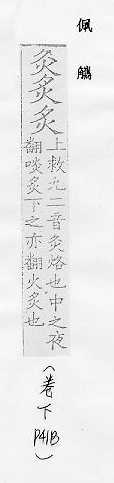 佩觿
灸炙炙
上救九二音灸烙也中之夜
翻啖炙下之亦翻火炙也
(卷下 P41B)